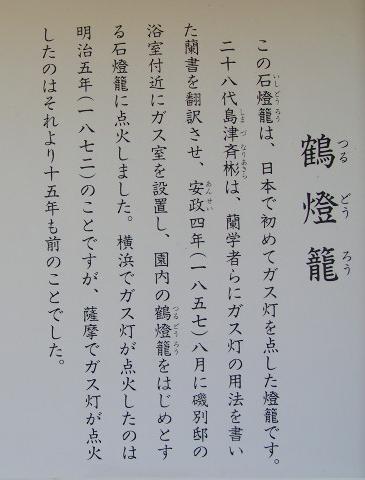 鶴燈籠
つる どう ろう
この石燈籠は、日本で初めてガス灯を点した燈籠です。
いしどうろう
二十八代島津斉彬は、蘭学者らにガス灯の用法を書い
しまづ なりあきら
た蘭書を翻訳させ、安政四年(一八五七)八月に磯別邸の
あんせい
浴室付近にガス室を設置し、園内の鶴燈籠をはじめとす
つるどうろう
る石燈籠に点火しました。横浜でガス灯が点火したのは
明治五年(一八七二)のことですが、薩摩でガス灯が点火
したのはそれより十五年も前のことでした。